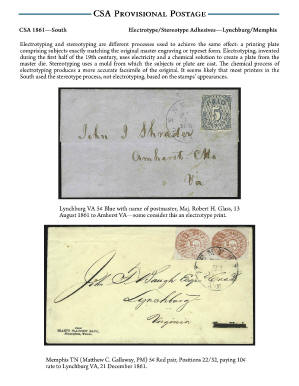 CSA PROVISIONAL POSTAGE
CSA 1861—South Electrotype/Stereotype Adhesives—Lynchburg/Memphis
Electrotyping and stereotyping are different processes used to achieve the same effect: a printing plate
comprising subjects exactly matching the original master engraving or typeset form. Electrotyping, invented
during the first half of the 19th century, uses electricity and a chemical solution to create a plate from the
master die. Stereotyping uses a mold from which the subjects or plate are cast. The chemical process of
electrotyping produces a more accurate facsimile of the original. It seems likely that most printers in the
South used the stereotype process, not electrotyping, based on the stamps' appearances.
PAID
5
John J Shrader
Amherst CHo
Va
Lynchburg VA 5¢ Blue with name of postmaster, Maj. Robert H. Glass, 13
August 1861 to Amherst VA—some consider this an electrotype print.
John G Baugh Esqr
Lynchburg
Virginia
Memphis TN (Matthew C. Gallaway, PM) 5¢ Red pair, Positions 22/32, paying 10¢
rate to Lynchburg VA, 21 December 1861.